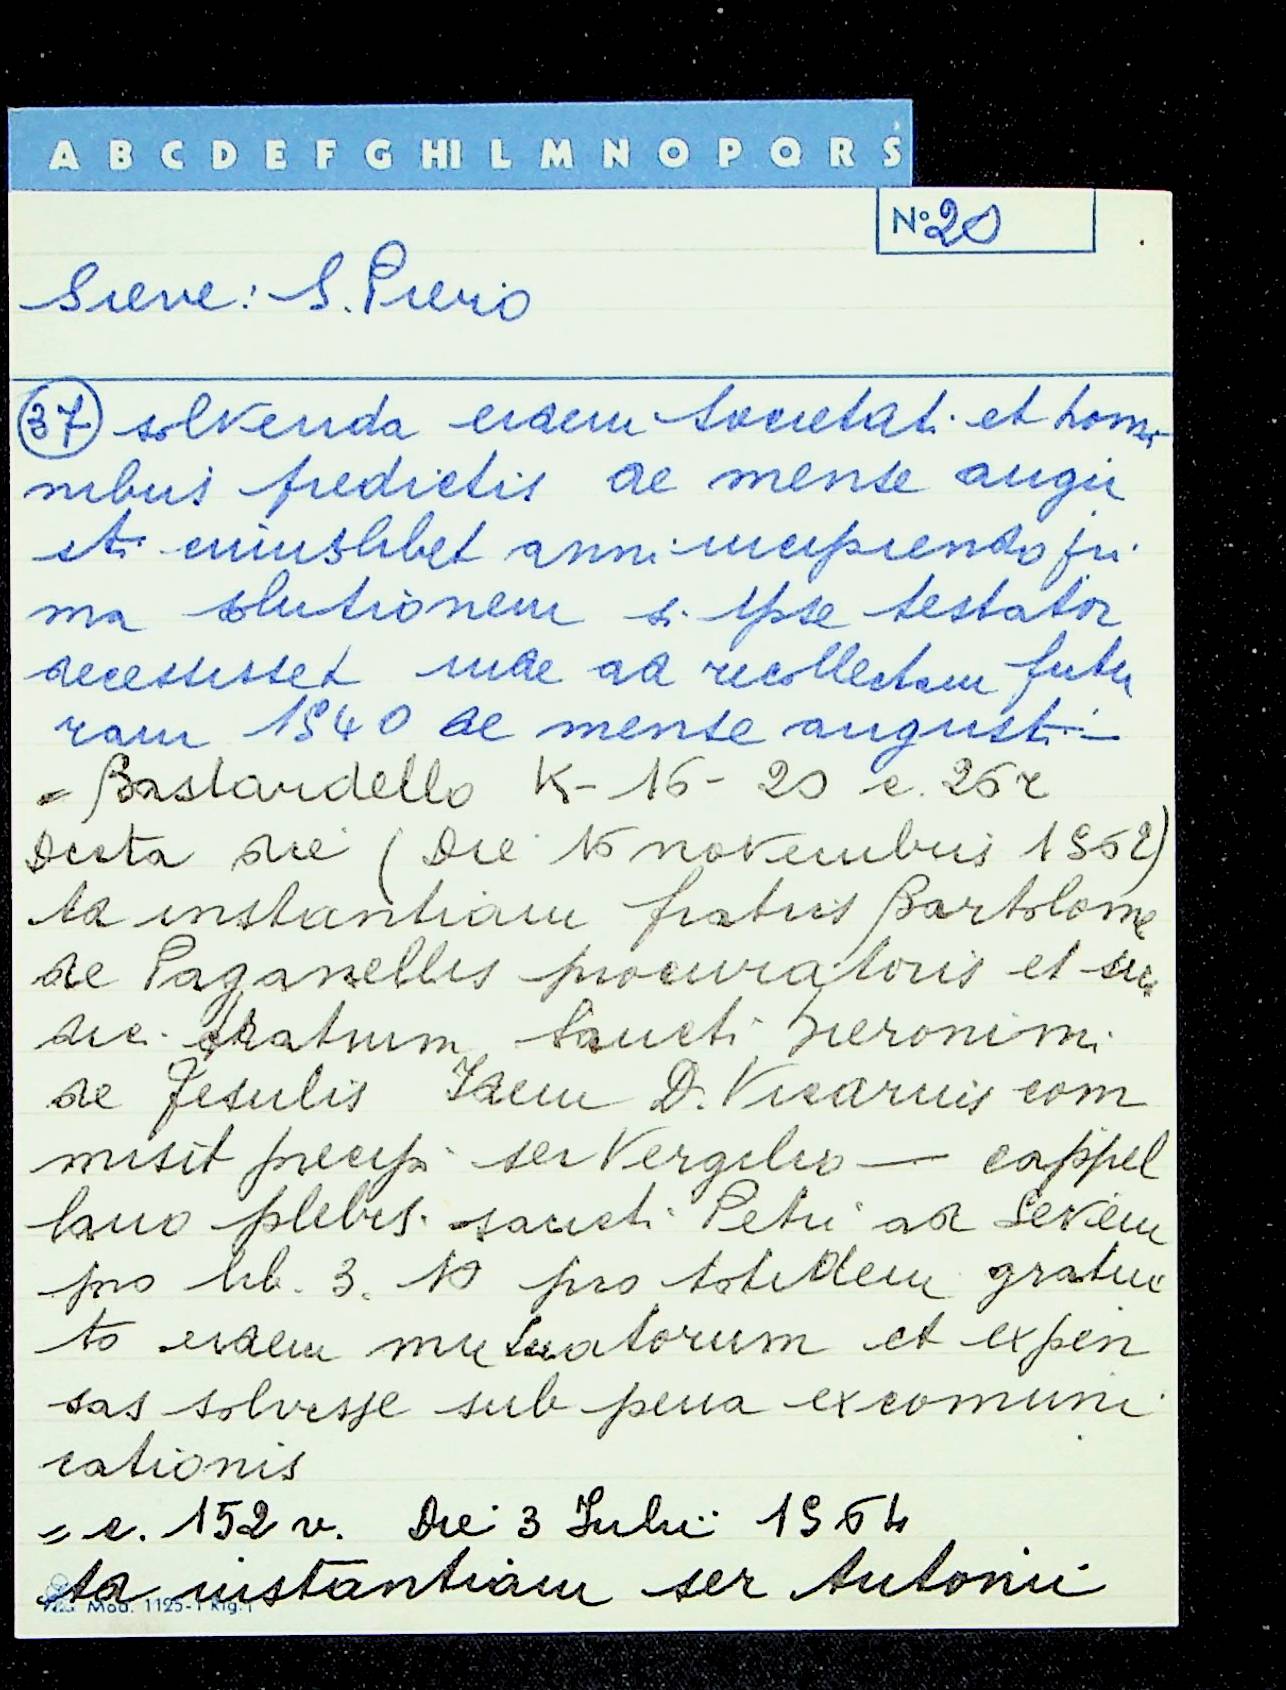 A B C D E F G HI L M N O P Q R S
N° 20
Sieve: S. Piero
37 solvenda eidem societati et homi
nibus predictis de mense augu
sti cuiuslibet anni incipiendo pri
ma solutionem si ipse testator
decessisset inde ad recollectam futu
ram 1540 de mense augusti -
= Bastardello K - 16 - 20 c. 26 r
Dicta die (Die 16 novembris 1562)
Ad instantiam fratris Bartolome
de Paganellis procuratoris et sin
dici fratrum Sancti Hieronimi
de Fesulis Idem D. Vicarius com
misit precipi ser Vergilio — cappel
lano plebis sancti Petri ad Sevem
pro lib. 3. 10 pro totidem gratui
to eidem mutuatorum et expen
sas solvisse sub pena excomuni
cationis
= c. 152 v. Die 3 Iulii 1564
Ad instantiam ser Antonii
Mod. 1125-1 Rig.